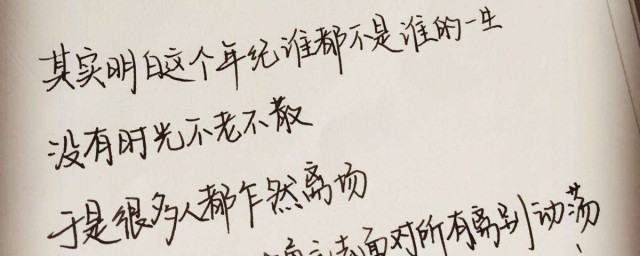 其实明白这个年纪谁都不是谁的一生
没有时光不老不散
于是很多人都乍然离场
去面对所有离别动荡